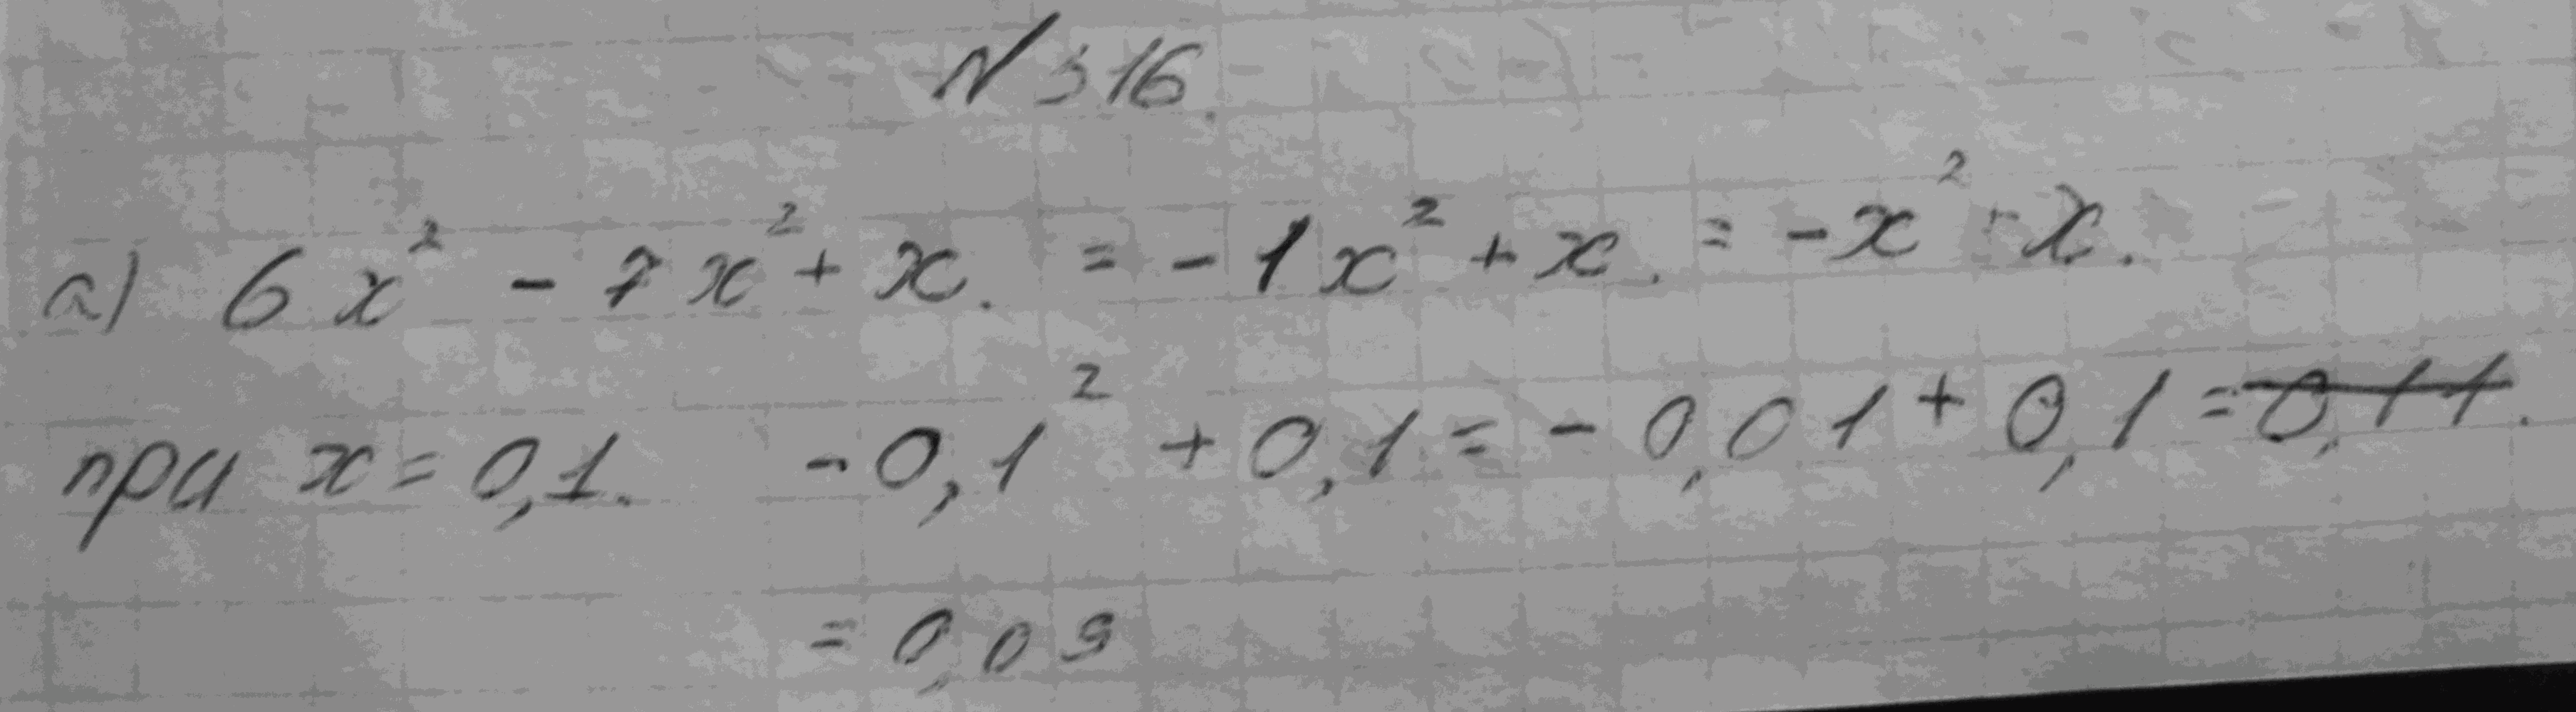 № 316.
а) 6x² - 7x² + x. = -1x² + x. = -x² + x.
при x = 0,1. -0,1² + 0,1 = -0,01 + 0,1 = 0,11.
= 0,09